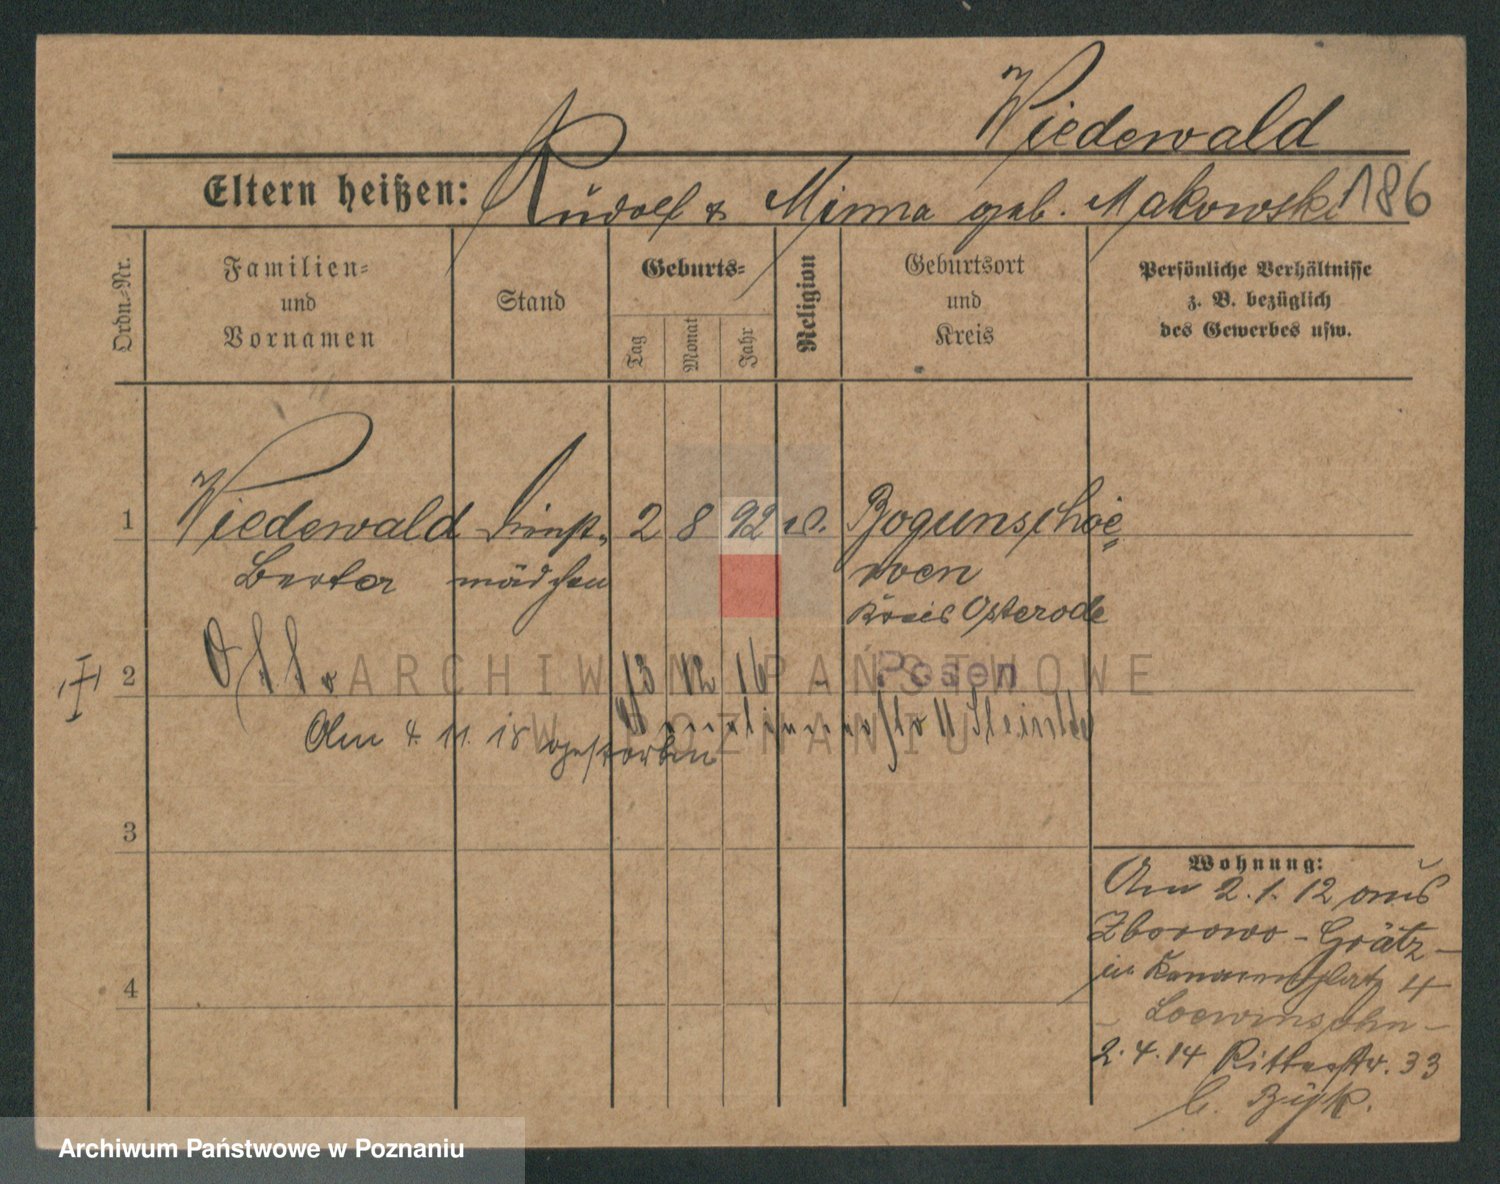 Wiedewald
Eltern heißen: Rudolf & Minna geb. Makowski 186
Ordn.-Nr.
Familien-
und
Vornamen
Stand
Geburts-
Tag
Monat
Jahr
Religion
Geburtsort
und
Kreis
Persönliche Verhältnisse
z. B. bezüglich
des Gewerbes usw.
1 Wiedewald Dienst- 2 8 92 Bogunschöe-
Berta mädchen wen
Kreis Osterode
2 13 12 16 Posen
Am 4. 11. 18 gestorben
3
4
Wohnung:
Am 2. 1. 12 aus
Zborowo - Grätz -
in Kanonenplatz 4
- Loewinsohn -
2. 4. 14 Ritterstr. 33
b.
ARCHIWUM PAŃSTWOWE
W POZNANIU
Archiwum Państwowe w Poznaniu